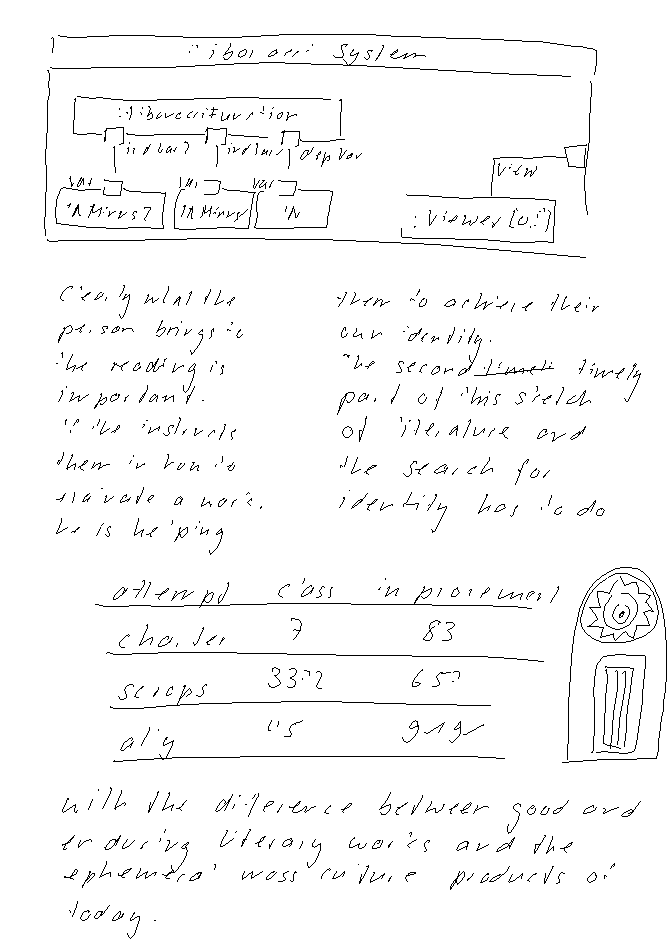 Fibonacci System
:FibonacciFunction
indVar2
indVar1
depVar
var
var
var
:NMinus2
:NMinus1
:N
view
:Viewer [0..*]
Clearly what the
person brings to
the reading is
important.
If he instructs
them in how to
evaluate a work,
he is helping
them to achieve their
own identity.
The second timely
part of this sketch
of literature and
the search for
identity has to do
attempt class improvement
charter 7 83
scraps 65
ally
with the difference between good and
enduring literary works and the
ephemeral mass culture products of
today.